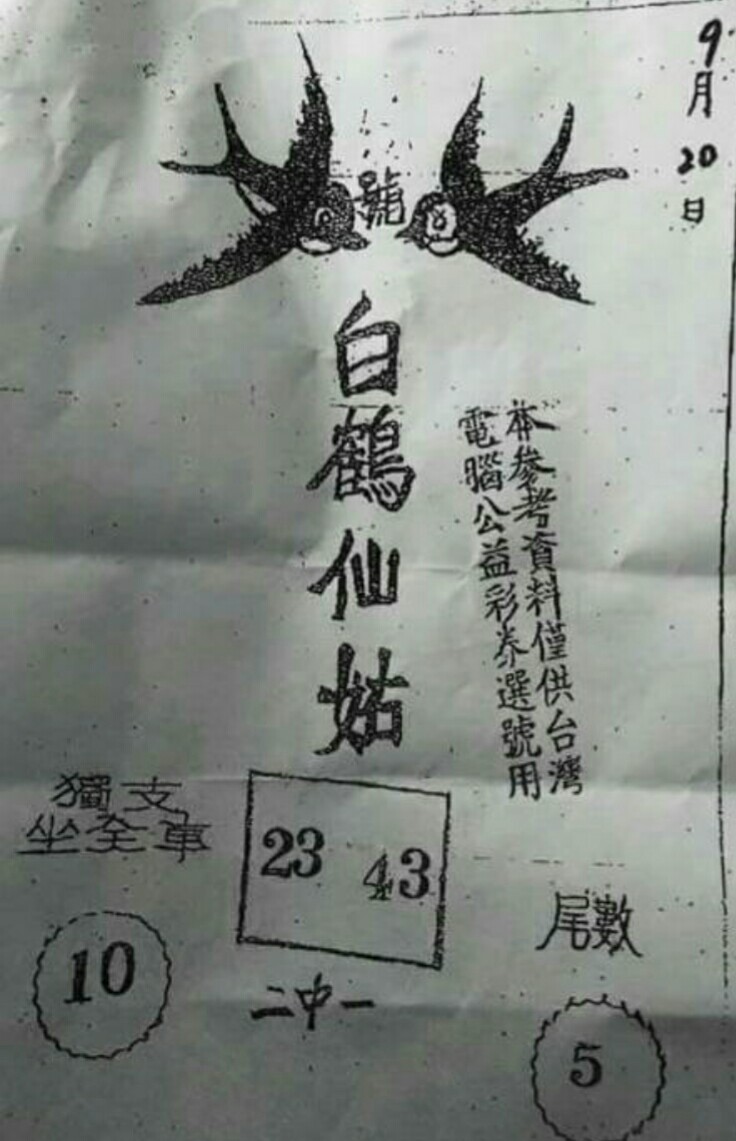 9月20日
號
白鶴仙姑
本參考資料僅供台灣
電腦公益彩券選號用
獨支
坐全車
10
23 43
二中一
尾數
5